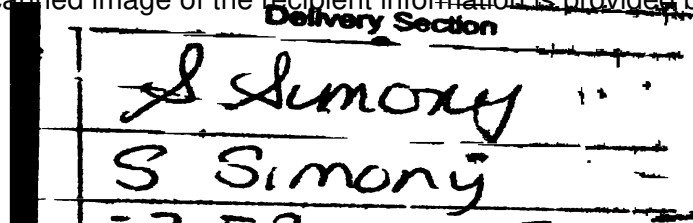 scanned image of the recipient information is provided b
Delivery Section
S Simony
S Simony